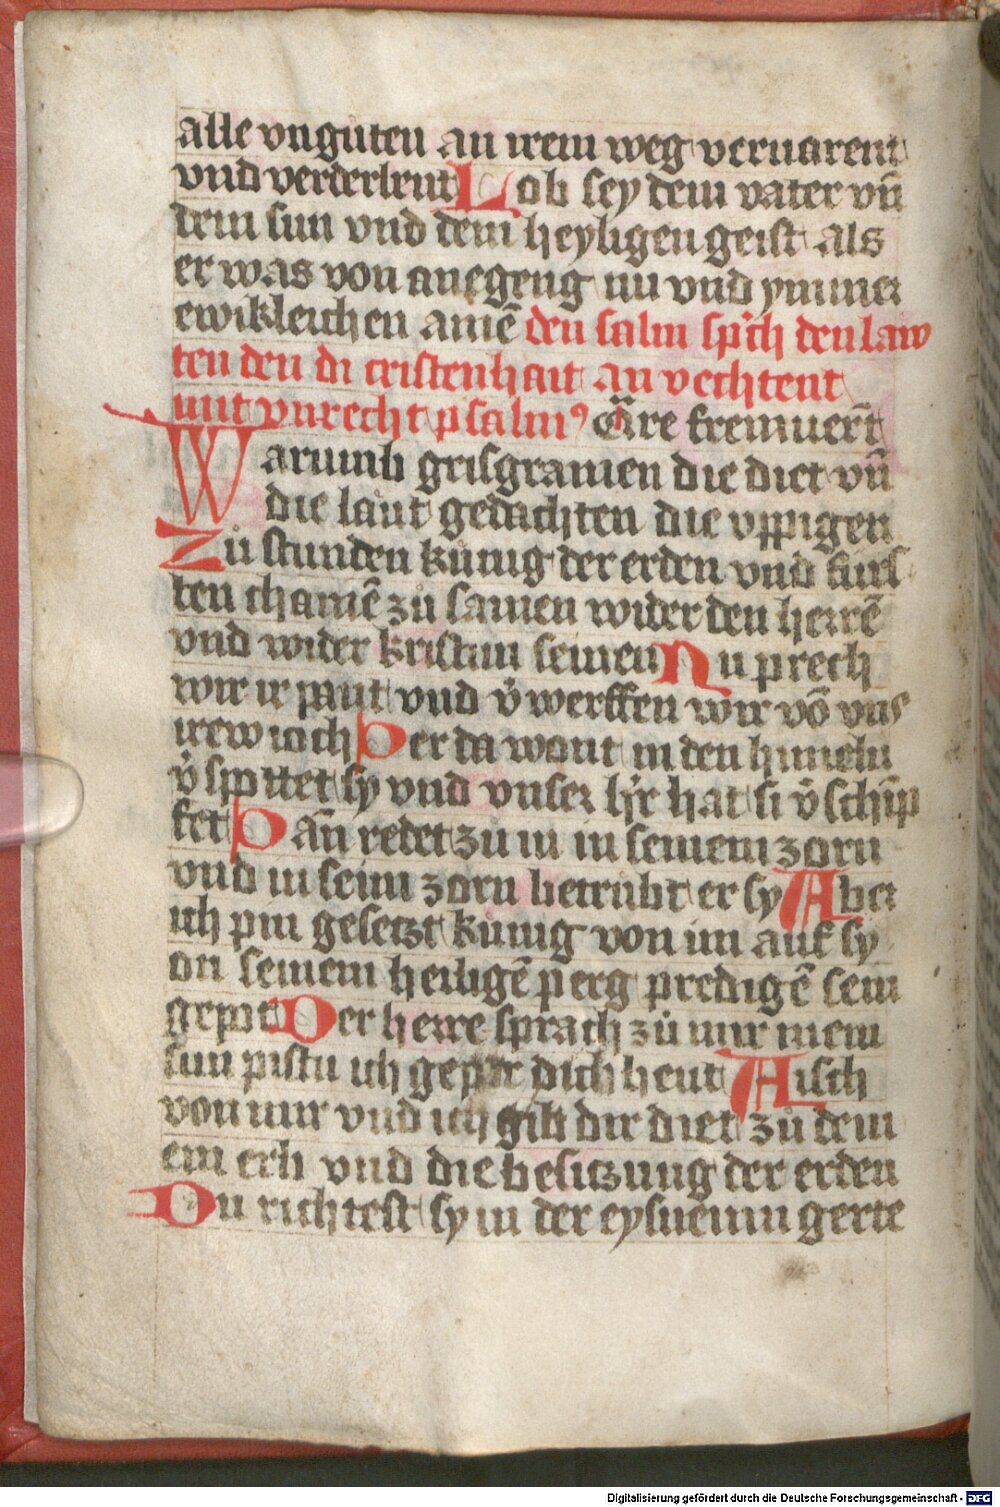 alle vnguten an irem weg veruarent
vnd verderbent Lob sey dem vater vn̄
dem sun vnd dem heyligen geist als
er was von anegeng nu vnd ymmer
ewikleichen amē den salm sp͛ch den law
ten den di cristenhait an vechtent
mit vnrecht psalmꝰ Q͛re fremuer̄t
Warumb grisgramen die diet vn̄
die laut gedachten die vppigen
Zů stunden kůnig der erden vnd furs
ten chamē zů samen wider den herrē
vnd wider kristum seinen Nu prech
wir ir pant vnd v̓werffen wir vō vns
irew ioch Der da wont in den himeln
v̓spottet sy vnd vnser hr̓ hat si v̓schīp
fet Dān redet zu in in seinem zorn
vnd in seim zorn betrubt er sy Aber
ich pin gesetzt kůnig von im auf sy
on seinem heiligē perg predigē sein
gepot Der herre sprach zů mir mein
sun pistu ich gepar dich heut Aisch
von mir vnd ich gib dir diet zů dem
em erb vnd die besitzung der erden
Du richtest sy in der eysneinn gerte
Digitalisierung gefördert durch die Deutsche Forschungsgemeinschaft - DFG